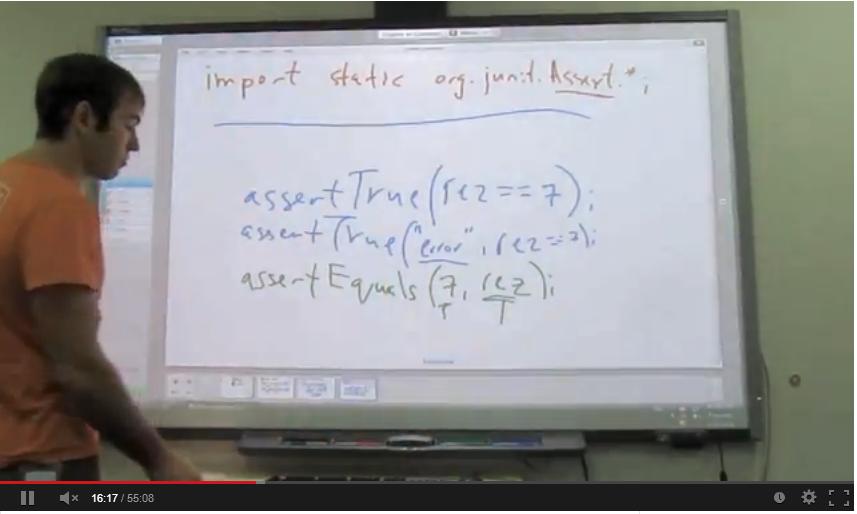 import static org.junit.Assert.*;
assertTrue(rez == 7);
assertTrue("error", rez == 7);
assertEquals(7, rez);
T T
16:17 / 55:08